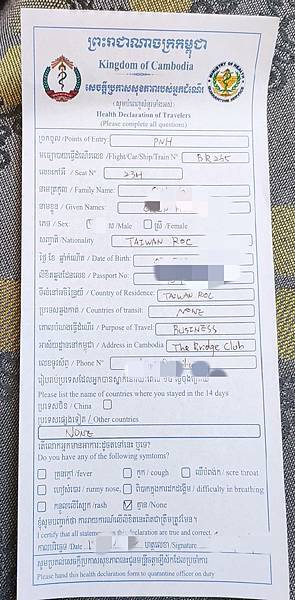 ព្រះរាជាណាចក្រកម្ពុជា
Kingdom of Cambodia
សេចក្តីប្រកាសសុខភាពរបស់អ្នកដំណើរ
(សូមបំពេញសំនួរទាំងអស់)
Health Declaration of Travelers
(Please complete all questions)
ច្រកចូល/Points of Entry: PNH
/Flight/Car/Ship/Train Nº BR265
លេខកៅអី / Seat Nº 23H
នាមត្រកូល / Family Name:
នាមខ្លួន / Given Names:
ភេទ / Sex: ស/Male ស្រី /Female
សញ្ជាតិ/Nationality TAIWAN ROC
ថ្ងៃ ខែ ឆ្នាំកំណើត / Date of Birth:
លិខិតឆ្លងដែនលេខ / Passport No:
/ Country of Residence: TAIWAN ROC
ប្រទេសឆ្លងកាត់ / Countries of transit: NONE
គោលបំណងធ្វើដំណើរ / Purpose of Travel: BUSINESS
អាស័យដ្ឋាននៅកម្ពុជា / Address in Cambodia The Bridge Club
លេខទូរស័ព្ទ / Phone Nº
Please list the name of countries where you stayed in the 14 days
ប្រទេសចិន / China
ប្រទេសផ្សេងទៀត / Other countries
NONE
តើលោកអ្នកមានអាការៈដូចតទៅនេះ ឬទេ?
Do you have any of the following symtoms?
គ្រុនក្តៅ /fever ក្អក / cough ឈឺបំពង់ក / sore throat
ហៀរសំបោរ / runny nose, ពិបាកក្នុងការដកដង្ហើម / difficulty in breathing
កន្ទួលលើស្បែក / rash គ្មាន /None
I certify that all statements declaration are true and correct.
កាលបរិច្ឆេទ /Date ហត្ថលេខា /Signature
Please hand this health declaration form to quarantine officer on duty